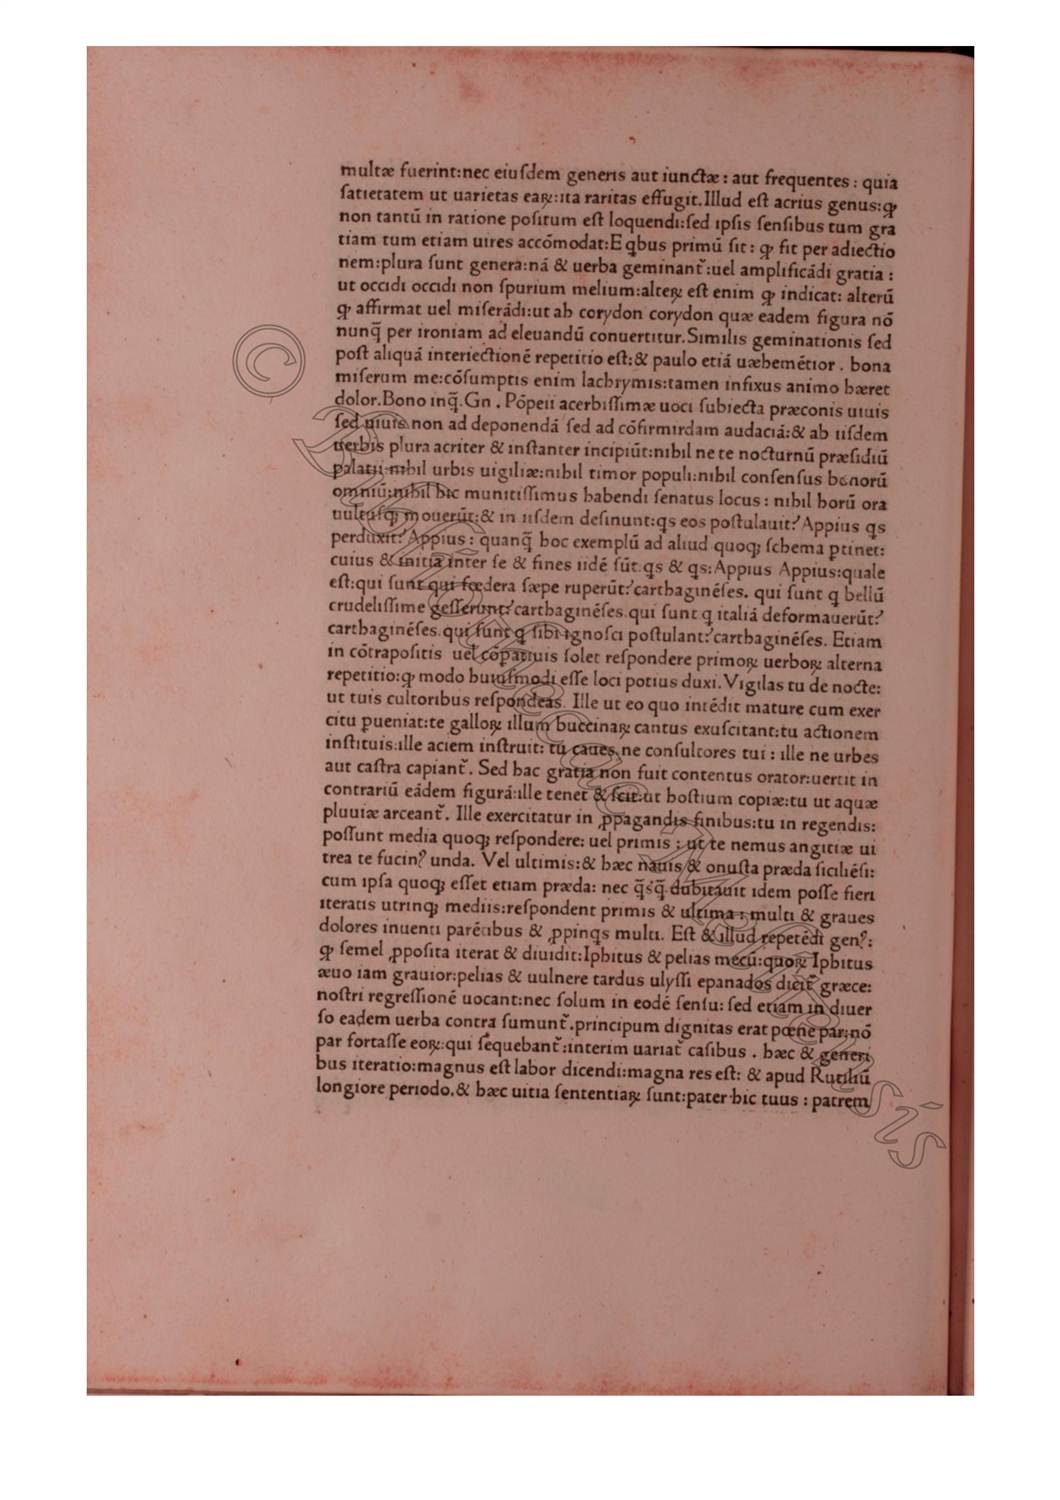 multæ fuerint:nec eiuſdem generis aut iunctæ : aut frequentes : quia
ſatietatem ut uarietas eaꝝ:ita raritas effugit.Illud eſt acrius genus:ꝙ
non tantū in ratione poſitum eſt loquendi:ſed ipſis ſenſibus tum gra
tiam tum etiam uires accōmodat:E qbus primū ſit : ꝙ fit per adiectio
nem:plura ſunt genera:nā & uerba geminant᷑:uel amplificādi gratia :
ut occidi occidi non ſpurium melium:alteꝝ eſt enim ꝙ indicat: alterū
ꝙ affirmat uel miſerādi:ut ab corydon corydon quæ eadem figura nō
nunq̄ per ironiam ad eleuandū conuertitur.Similis geminationis ſed
poſt aliquā interiectionē repetitio eſt:& paulo etiā uæhemētior . bona
miſerum me:cōſumptis enim lachrymis:tamen infixus animo hæret
dolor.Bono inq̄. Gn . Pōpeii acerbiſſimæ uoci ſubiecta præconis uiuis
ſed uiuis non ad deponendā ſed ad cōfirmirdam audaciā:& ab iiſdem
uerbis plura acriter & inſtanter incipiūt:nihil ne te nocturnū præſidiū
palatii:nihil urbis uigiliæ:nihil timor populi:nihil conſenſus bonorū
omniū:nihil hic munitiſſimus habendi ſenatus locus : nihil horū ora
uultuſqꝫ mouerūt:& in iiſdem deſinunt:qs eos poſtulauit? Appius qs
perduxit? Appius : quanq̄ hoc exemplū ad aliud quoqꝫ ſchema ꝑtinet:
cuius & initia inter ſe & fines iidē ſūt.qs & qs:Appius Appius:quale
eſt:qui ſunt qui fœdera ſæpe ruperūt? carthaginēſes. qui ſunt q bellū
crudeliſſime geſſerunt? carthaginēſes.qui ſunt q italiā deformauerūt?
carthaginēſes.qui ſunt q ſibi ignoſci poſtulant? carthaginēſes. Etiam
in cōtrapoſitis uel cōpatiuis ſolet reſpondere primoꝝ uerboꝝ alterna
repetitio:ꝙ modo huiuſmodi eſſe loci potius duxi. Vigilas tu de nocte:
ut tuis cultoribus reſpondeas. Ille ut eo quo intēdit mature cum exer
citu pueniat:te galloꝝ illum buccinaꝝ cantus exuſcitant:tu actionem
inſtituis:ille aciem inſtruit: tu caues ne conſultores tui : ille ne urbes
aut caſtra capiant᷑. Sed hac gratia non fuit contentus orator:uertit in
contrariū eādem figurā:ille tenet & ſcit:ut hoſtium copiæ:tu ut aquæ
pluuiæ arceant᷑. Ille exercitatur in ꝓpagandis finibus:tu in regendis:
poſſunt media quoqꝫ reſpondere: uel primis : ut te nemus angitiæ ui
trea te fucinꝰ unda. Vel ultimis:& hæc nauis & onuſta præda ſiciliēſi:
cum ipſa quoqꝫ eſſet etiam præda: nec q̄sq̄ dubitauit idem poſſe fieri
iteratis utrinqꝫ mediis:reſpondent primis & ultima : multi & graues
dolores inuenti parētibus & ꝓpinqs multi. Eſt & illud repetēdi genꝰ:
ꝙ ſemel ꝓpoſita iterat & diuidit:Iphitus & pelias mecū:quoꝝ Iphitus
æuo iam grauior:pelias & uulnere tardus ulyſſi epanados dicit᷑ græce:
noſtri regreſſionē uocant:nec ſolum in eodē ſenſu: ſed etiam in diuer
ſo eadem uerba contra ſumunt᷑.principum dignitas erat pœne par:nō
par fortaſſe eoꝝ:qui ſequebant᷑:interim uariat᷑ caſibus . hæc & generi
bus iteratio:magnus eſt labor dicendi:magna res eſt: & apud Rutiliū
longiore periodo.& hæc uitia ſententiaꝝ ſunt:pater hic tuus : patrem